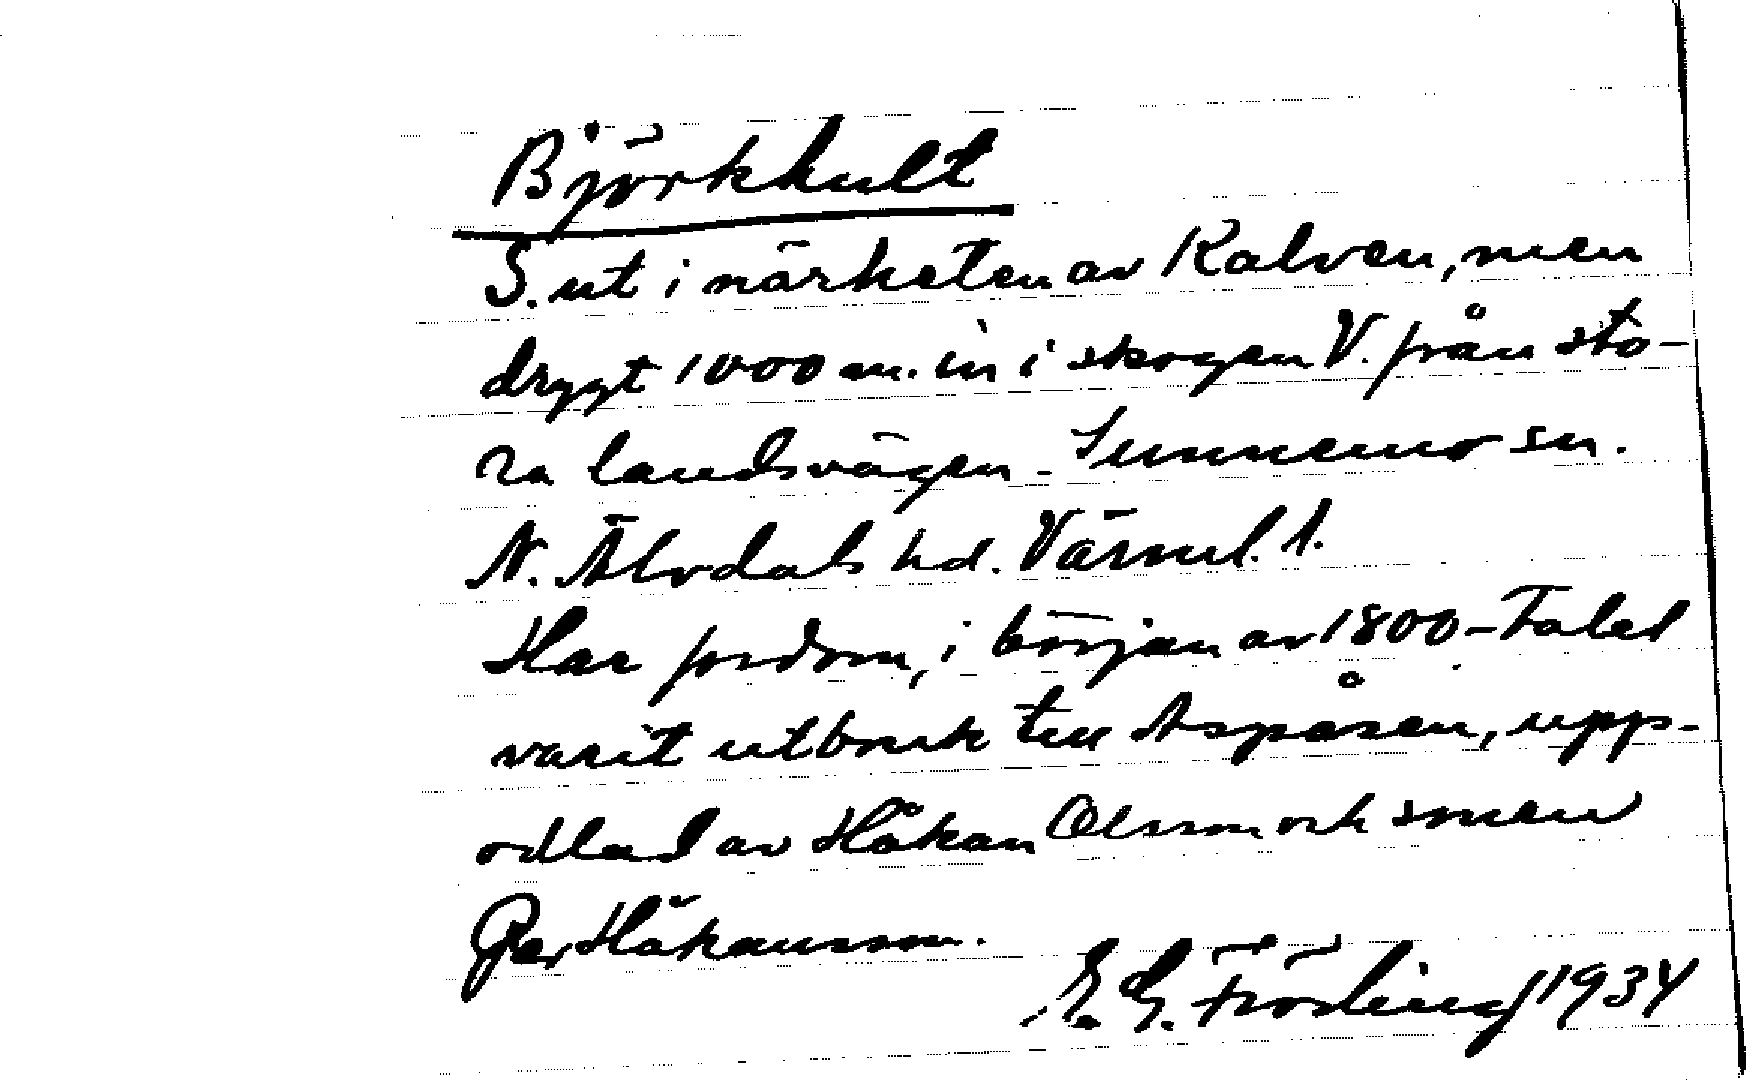 Björkhult
S. ut i närheten av Kalven, men
drygt 1000 m. in i skogen V. från sto-
ra landsvägen - Sunnemo sn.
N. Älvdals hd. Värml. l.
Har fordom, i början av 1800-talet
varit utbruk till Aspåsen, upp-
odlad av Håkan Olsson och sonen
Per Håkansson.
E. G. Fröding 1934